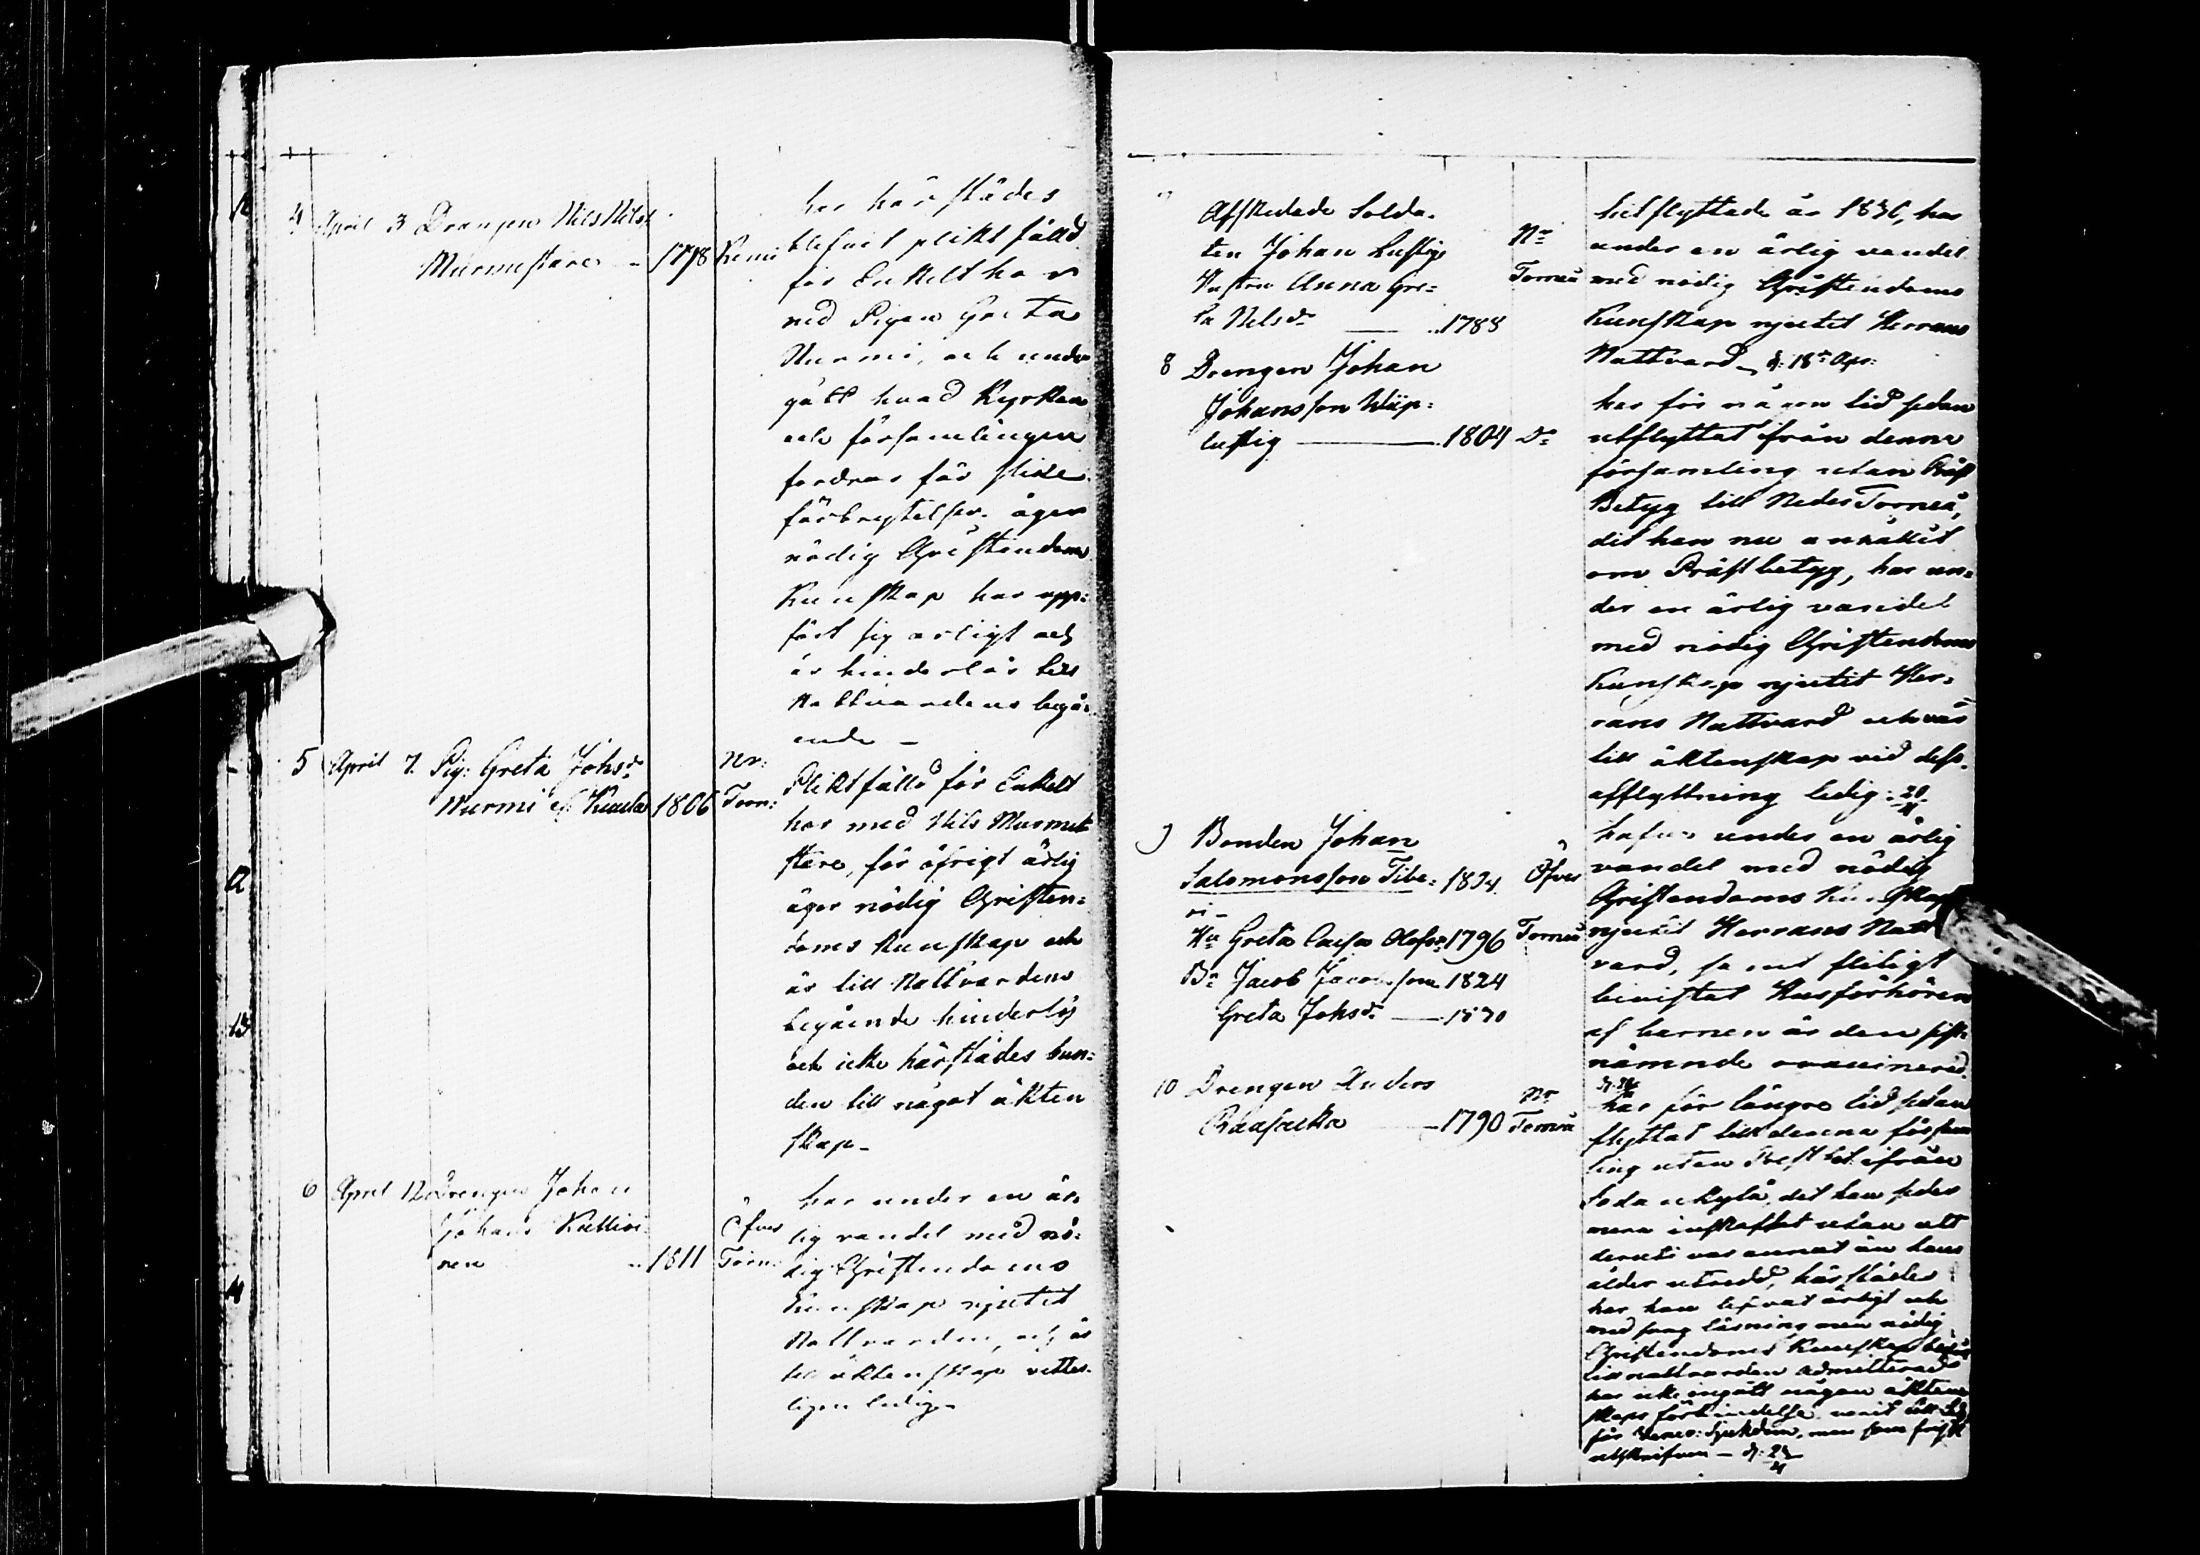 4 April 3 Drengen Nils Nils
Murmestare 1798 Kemi
har härstädes
blifvit pliktfälld
för Enkelt hor
med Pigan Greta
Nurmi, och under
gått hvad Kyrkan
och församlingen
fordrar för slike
förbrytelser. äger
nödig Christendoms
Kunskap har upp=
fört sig ärligt och
är hinderlös till
Nattvardens begå=
ende –
5 April 7. Pig: Greta Johsdr
Nurmi 1806 Nr: Torn:
Pliktfälld för Enkelt
hor med Nils Murme
stare, för öfrigt ärlig
äger nödig Christen=
doms kunskap och
är till Nattvardens
begående hinderlös
och icke härstädes bun=
den till något äkten
skap –
6 April 12 Drengen Johan
Johans Kallioi
nen 1811 Öfver Torn:
har under en är=
lig vandel med nö=
dig Christendoms
Kunskap njutit
Nattvarden, och är
till äktenskap vitter=
ligen ledig –
7
Afskedade Solda=
ten Johan Lustigs
Hustru Anna Gre=
ta Nilsdr 1788
Nr Torneå
hitflyttade år 1836, har
under en ärlig vandel
med nödig Christendoms
Kunskap njutit Herrans
Nattvard – d: 18de Apr:
8 Drengen Johan
Johansson
Lustig 1804 Do
har för någon tid sedan
utflyttat från denna
församling utan Präst
Betyg till Neder Torneå,
dit han nu anhållit
om Prästbetyg, har un=
der en ärlig vandel
med nödig Christendoms
Kunskap njutit Her=
rans Nattvard och var
till äktenskap vid dess
afflyttning ledig:
9 Bonden Johan
Salomonsson Tibe= 1804 Öfver
ri –
Hu Greta Caisa Olofsdr 1796 Torneå
Bn Jacob Jacobsson 1824
Greta Johsdr 1830
hafva under en ärlig
vandel med nödig
Christendoms Kunskap
njutit Herrans Natt
vard, samt flitigt
bevistat Husförhören
af barnen är den sist=
nämnde vaccinerad.
10 Drengen Anders
1790 Nr Torneå
har för längre tid sedan
flyttat till denna försam
ling utan Prestbet: ifrån
Sodankylä, det han seder
mera inskaffat utan att
deruti var annat än hans
ålder utredd, härstädes
har han lefvat ärligt och
med svag läsning men nödig
Christendoms Kunskap
till nattvarden admitterad
har icke ingått någon äkten
skaps förbindelse varit
för Vener: Sjukdom, men som frisk
utskrifven – d: